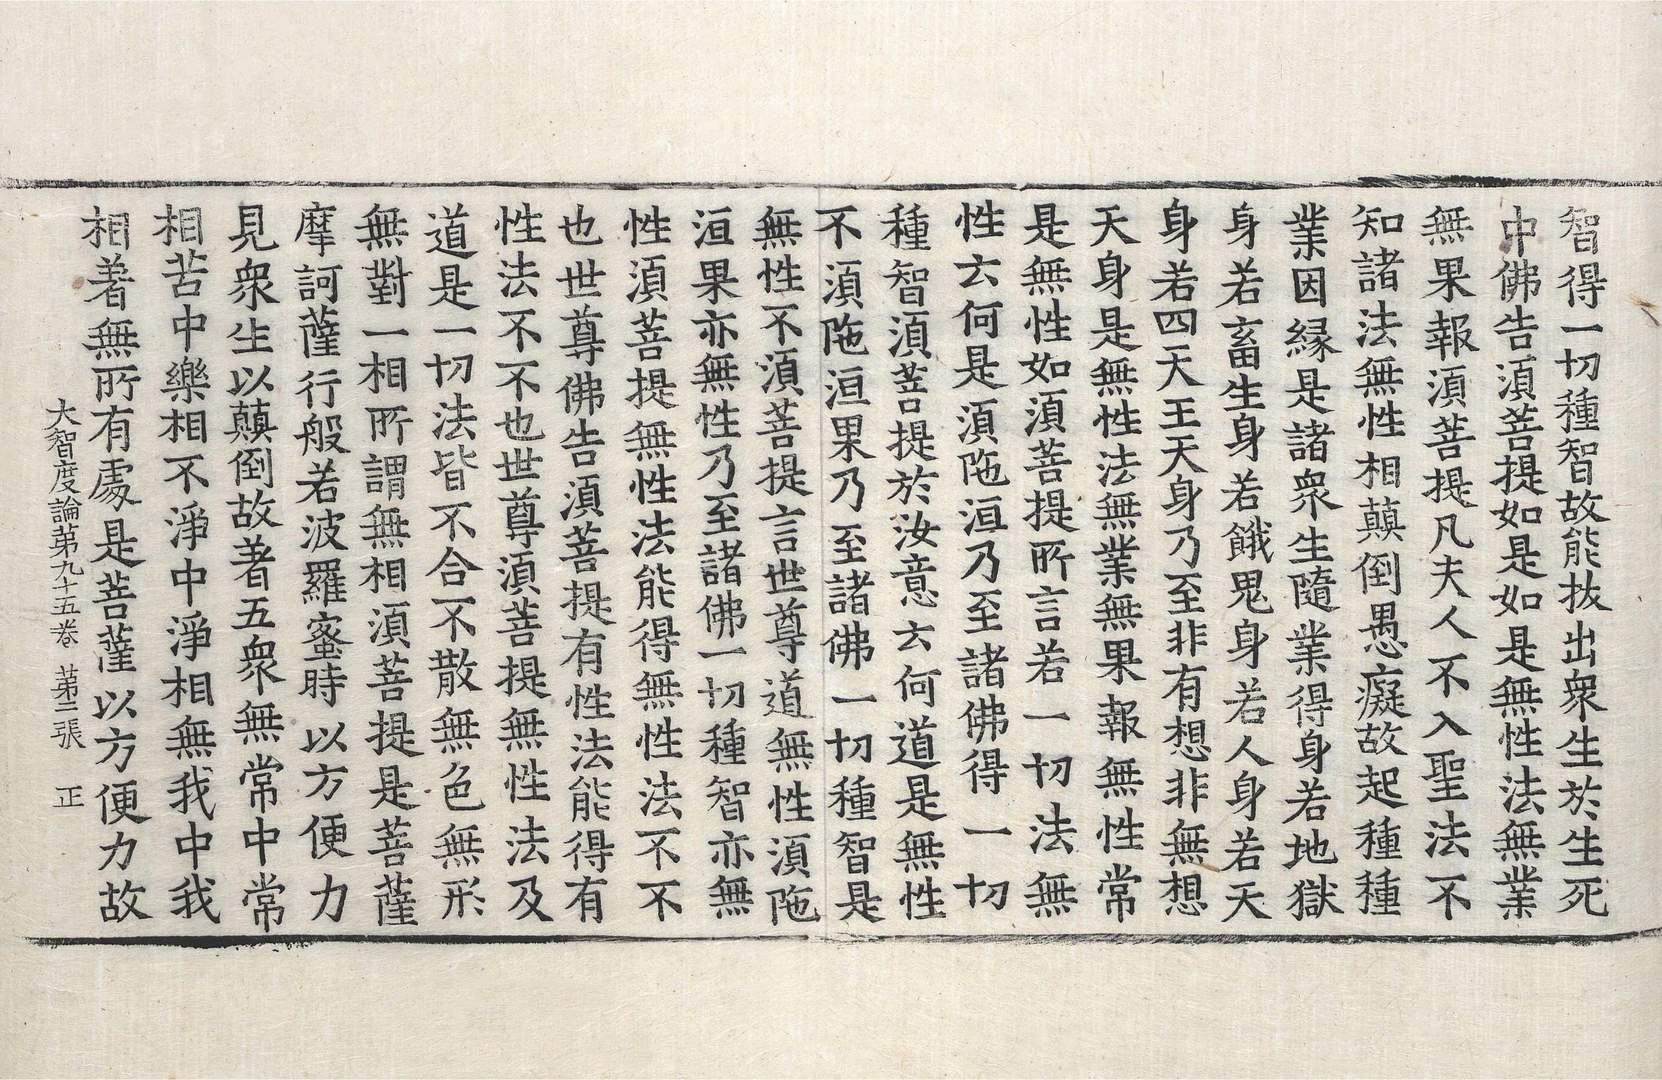 智得一切種智故能拔出衆生於生死
中佛告湏菩提如是如是無性法無業
無果報湏菩提凡夫人不入聖法不
知諸法無性相顛倒愚癡故起種種
業因緣是諸衆生隨業得身若地獄
身若畜生身若餓鬼身若人身若天
身若四天王天身乃至非有想非無想
天身是無性法無業無果報無性常
是無性如湏菩提所言若一切法無
性云何是湏陁洹乃至諸佛得一切
種智湏菩提於汝意云何道是無性
不湏陁洹果乃至諸佛一切種智是
無性不湏菩提言世尊道無性湏陁
洹果亦無性乃至諸佛一切種智亦無
性湏菩提無性法能得無性法不不
也世尊佛告湏菩提有性法能得有
性法不不也世尊湏菩提無性法及
道是一切法皆不合不散無色無形
無對一相所謂無相湏菩提是菩薩
摩訶薩行般若波羅蜜時以方便力
見衆生以顛倒故著五衆無常中常
相苦中樂相不淨中淨相無我中我
相著無所有處是菩薩以方便力故
大智度論第九十五卷 第二張 正